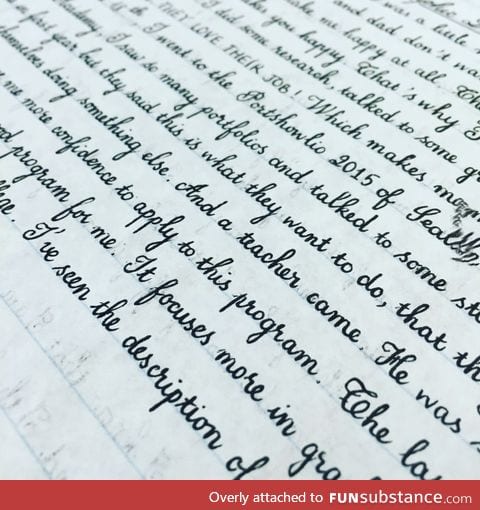 was a little
and dad don't wa
me happy at all. Th
you happy. That's why I
did some research, talked to some g
THEY LOVE THEIR JOB! Which makes
I went to the Portshowlio 2015 of Seatt
I saw so many portfolios and talked to some stu
first year but they said this is what they want to do, that th
themselves doing something else. And a teacher came. He was s
me more confidence to apply to this program. The la
program for me. It focuses more in gra
ege. I've seen the description of
Overly attached to FUNsubstance.com